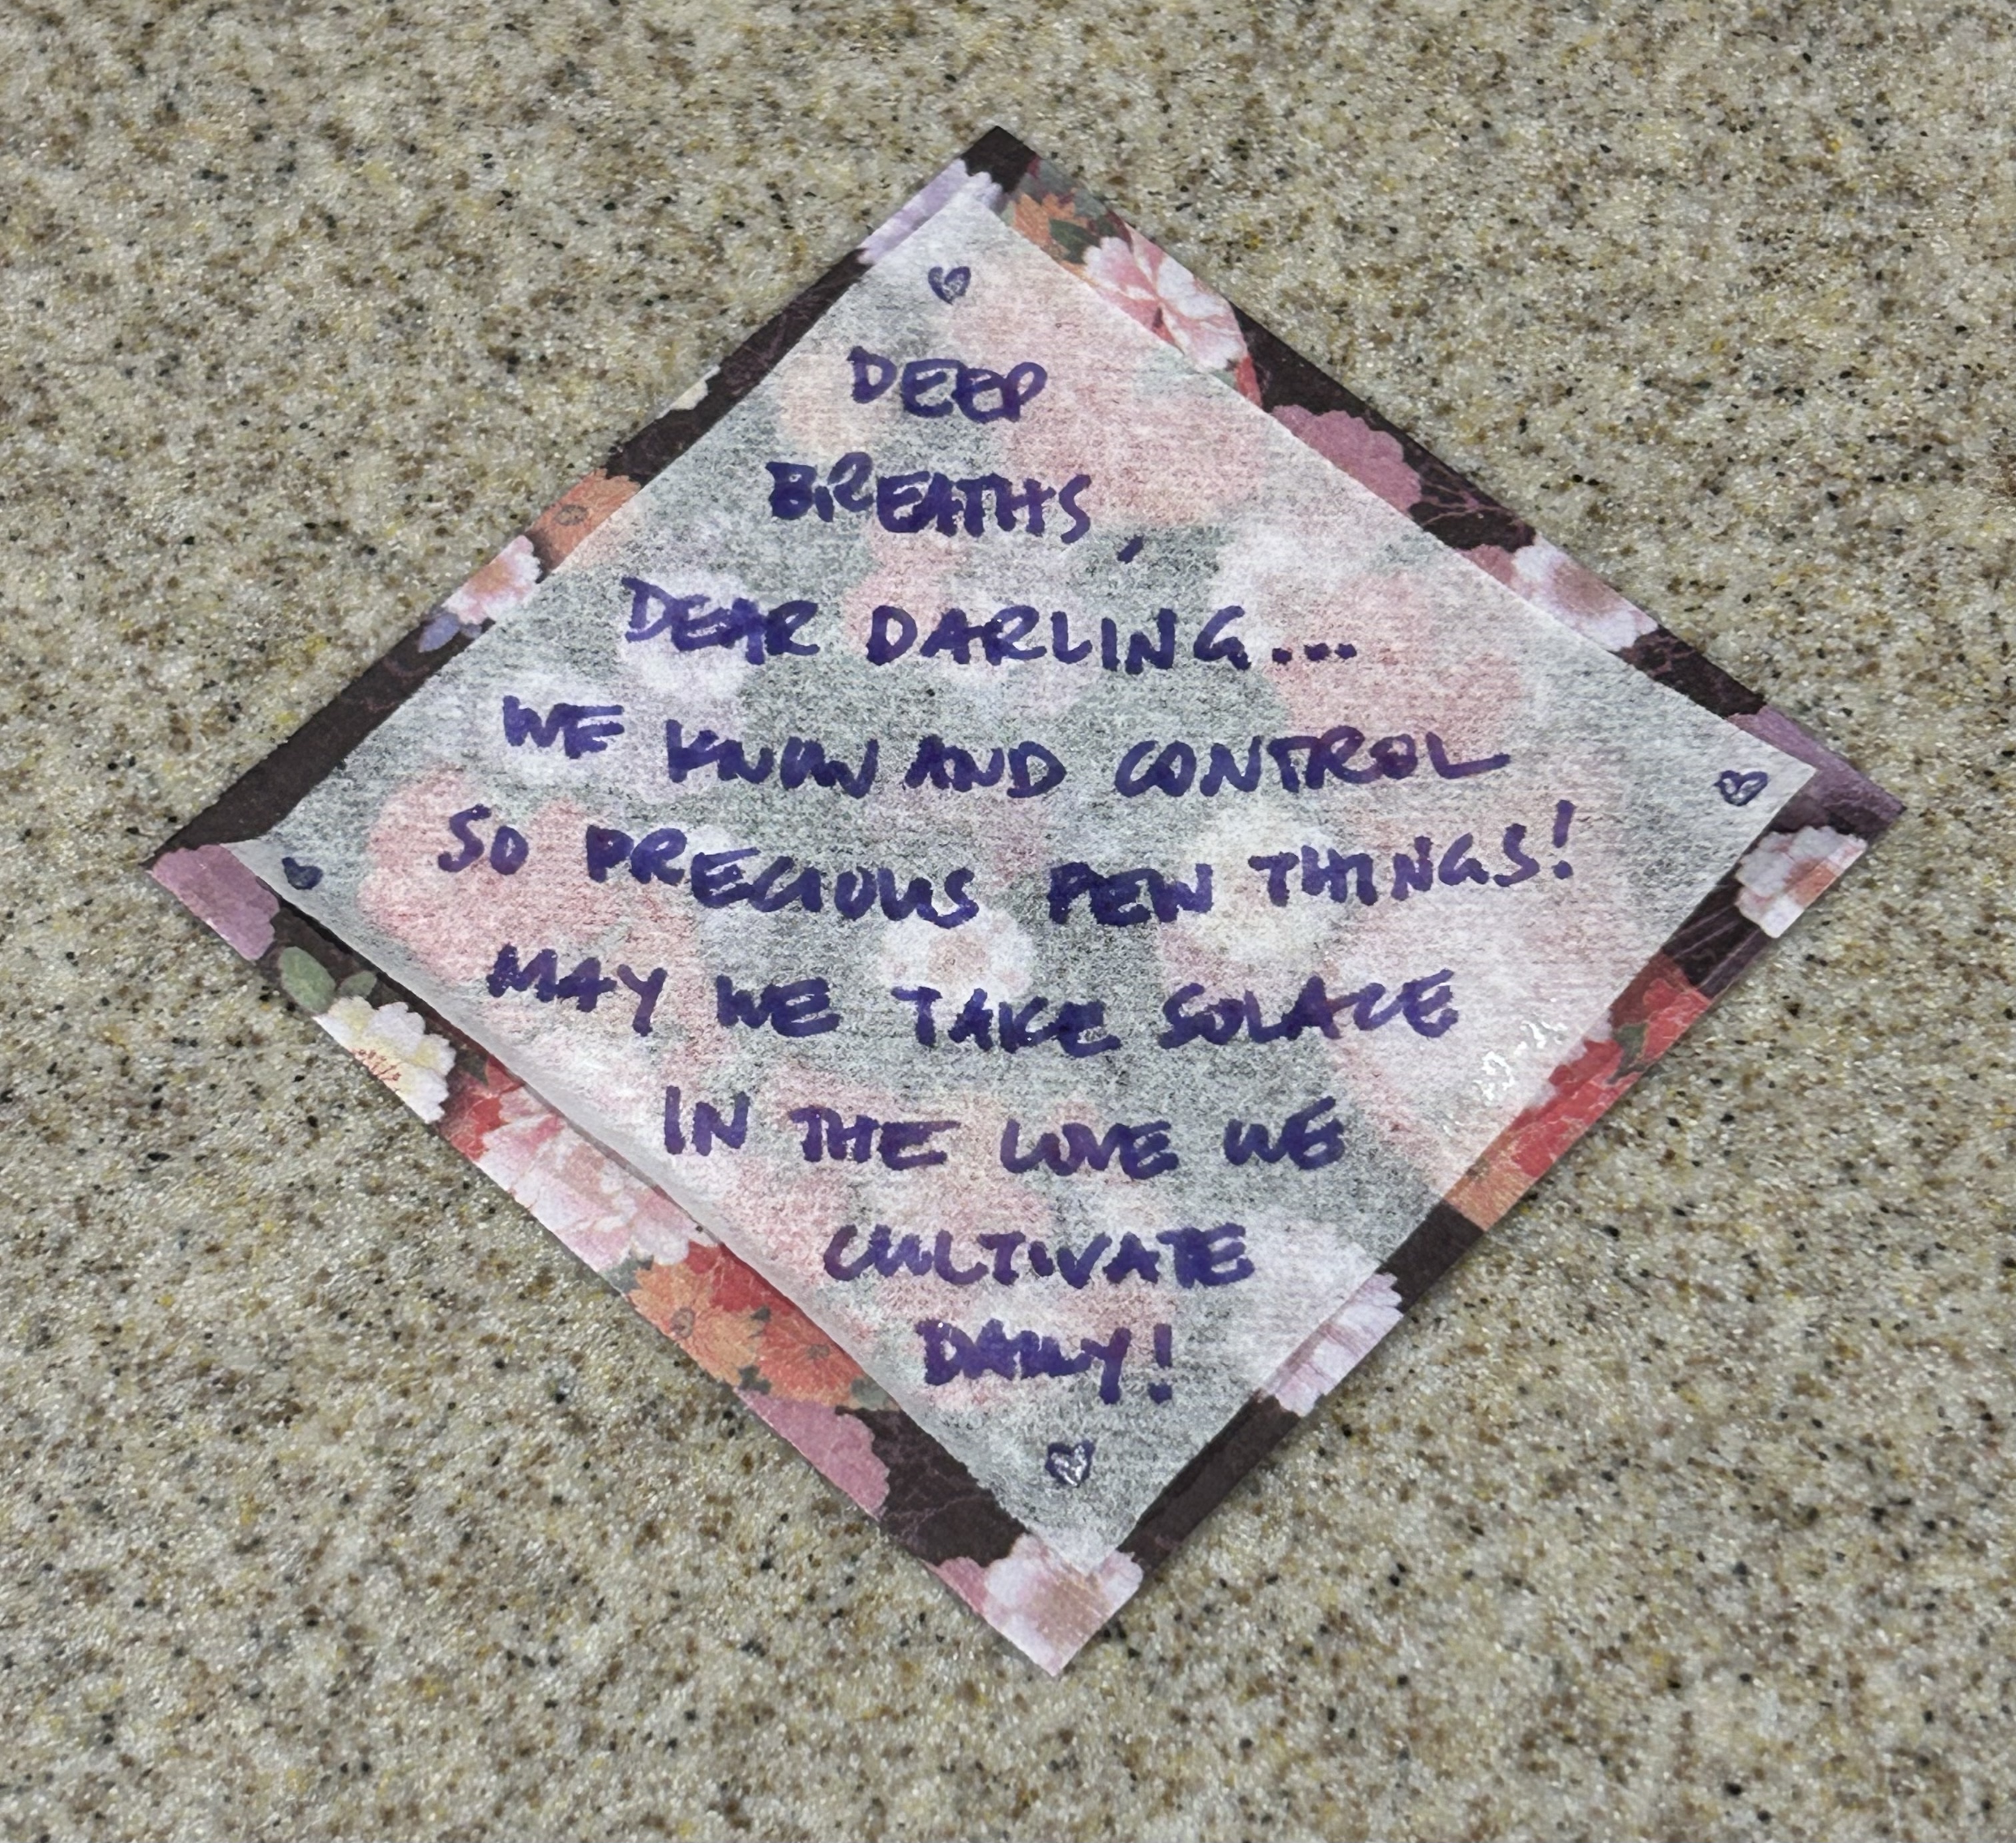 DEEP
BREATHS,
DEAR DARLING...
WE KNOW AND CONTROL
SO PRECIOUS FEW THINGS!
MAY WE TAKE SOLACE
IN THE LOVE WE
CULTIVATE
DAILY!